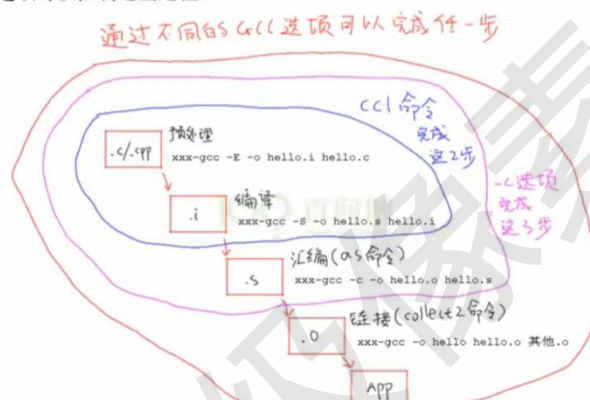 通过不同的GCC选项可以完成任一步
cc1命令
完成
这2步
.c/.cpp
预处理
xxx-gcc -E -o hello.i hello.c
-c选项
完成
这3步
.i
编译
xxx-gcc -S -o hello.s hello.i
.s
汇编(as命令)
xxx-gcc -c -o hello.o hello.s
.o
链接(collect2命令)
xxx-gcc -o hello hello.o 其他.o
APP